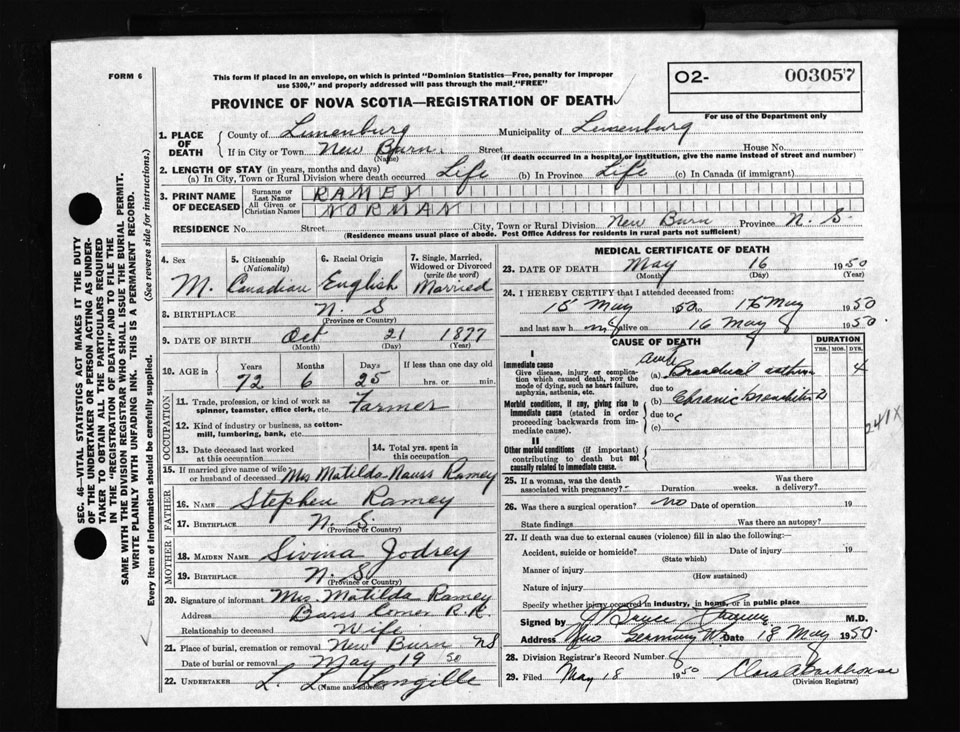 FORM 6
This form if placed in an envelope, on which is printed "Dominion Statistics—Free, penalty for improper
use $300," and properly addressed will pass through the mail "FREE"
O2- 003057
For use of the Department only
PROVINCE OF NOVA SCOTIA—REGISTRATION OF DEATH
1. PLACE OF DEATH
County of Lunenburg Municipality of Lunenburg
If in City or Town New Burn. (Name) Street House No.
(If death occurred in a hospital or institution, give the name instead of street and number)
2. LENGTH OF STAY (in years, months and days)
(a) In City, Town or Rural Division where death occurred Life (b) In Province Life (c) In Canada (if immigrant)
3. PRINT NAME OF DECEASED
Surname or Last Name RAMEY
All Given or Christian Names NORMAN
RESIDENCE No. Street City, Town or Rural Division New Burn Province N. S.
(Residence means usual place of abode. Post Office Address for residents in rural parts not sufficient)
SEC. 46—VITAL STATISTICS ACT MAKES IT THE DUTY
OF THE UNDERTAKER OR PERSON ACTING AS UNDER-
TAKER TO OBTAIN ALL THE PARTICULARS REQUIRED
IN THE "REGISTRATION OF DEATH" AND TO FILE THE
SAME WITH THE DIVISION REGISTRAR WHO SHALL ISSUE THE BURIAL PERMIT.
WRITE PLAINLY WITH UNFADING INK. THIS IS A PERMANENT RECORD.
Every item of information should be carefully supplied. (See reverse side for instructions.)
4. Sex M.
5. Citizenship (Nationality) Canadian
6. Racial Origin English
7. Single, Married, Widowed or Divorced (write the word) Married
8. BIRTHPLACE N. S (Province or Country)
9. DATE OF BIRTH Oct 21 1877
(Month) (Day) (Year)
10. AGE in Years Months Days If less than one day
72 6 25 hrs. or min.
OCCUPATION
11. Trade, profession, or kind of work as
spinner, teamster, office clerk, etc. Farmer
12. Kind of industry or business, as cotton-
mill, lumbering, bank, etc.
13. Date deceased last worked at this occupation
14. Total yrs. spent in this occupation
15. If married give name of wife
or husband of deceased Mrs Matilda Nauss Ramey
FATHER
16. NAME Stephen Ramey
17. BIRTHPLACE N. S. (Province or Country)
MOTHER
18. MAIDEN NAME Sivina Jodrey
19. BIRTHPLACE N. S (Province or Country)
20. Signature of informant Mrs. Matilda Ramey
Address Barss Corner R. R.
Relationship to deceased Wife
21. Place of burial, cremation or removal New Burn NS
Date of burial or removal May 19 50
22. UNDERTAKER L. L. Langille
(Name and address)
MEDICAL CERTIFICATE OF DEATH
23. DATE OF DEATH May 16 1950
(Month) (Day) (Year)
24. I HEREBY CERTIFY that I attended deceased from:
15 May 1950 to 16 May 1950
and last saw h im alive on 16 May 1950.
CAUSE OF DEATH DURATION
YRS. MOS. DYS.
I
Immediate cause
Give disease, injury or complica-
tion which caused death, NOT the
mode of dying, such as heart failure,
asphyxia, asthenia, etc.
(a) Bronchial asthma 4
due to
(b) Chronic bronchitis
due to
(c)
241X
Morbid conditions, if any, giving rise to
immediate cause (stated in order
proceeding backwards from im-
mediate cause).
II
Other morbid conditions (if important)
contributing to death but not
causally related to immediate cause.
25. If a woman, was the death
associated with pregnancy? Duration weeks. Was there a delivery?
26. Was there a surgical operation? no Date of operation 19
State findings Was there an autopsy?
27. If death was due to external causes (violence) fill in also the following:—
Accident, suicide or homicide? Date of injury 19
(State which)
Manner of injury
(How sustained)
Nature of injury
Specify whether injury occurred in industry, in home, or in public place
Signed by Bruce M.D.
Address New Germany Date 18 May 1950.
28. Division Registrar's Record Number
29. Filed May 18 1950 Clara A Barkhouse
(Division Registrar)